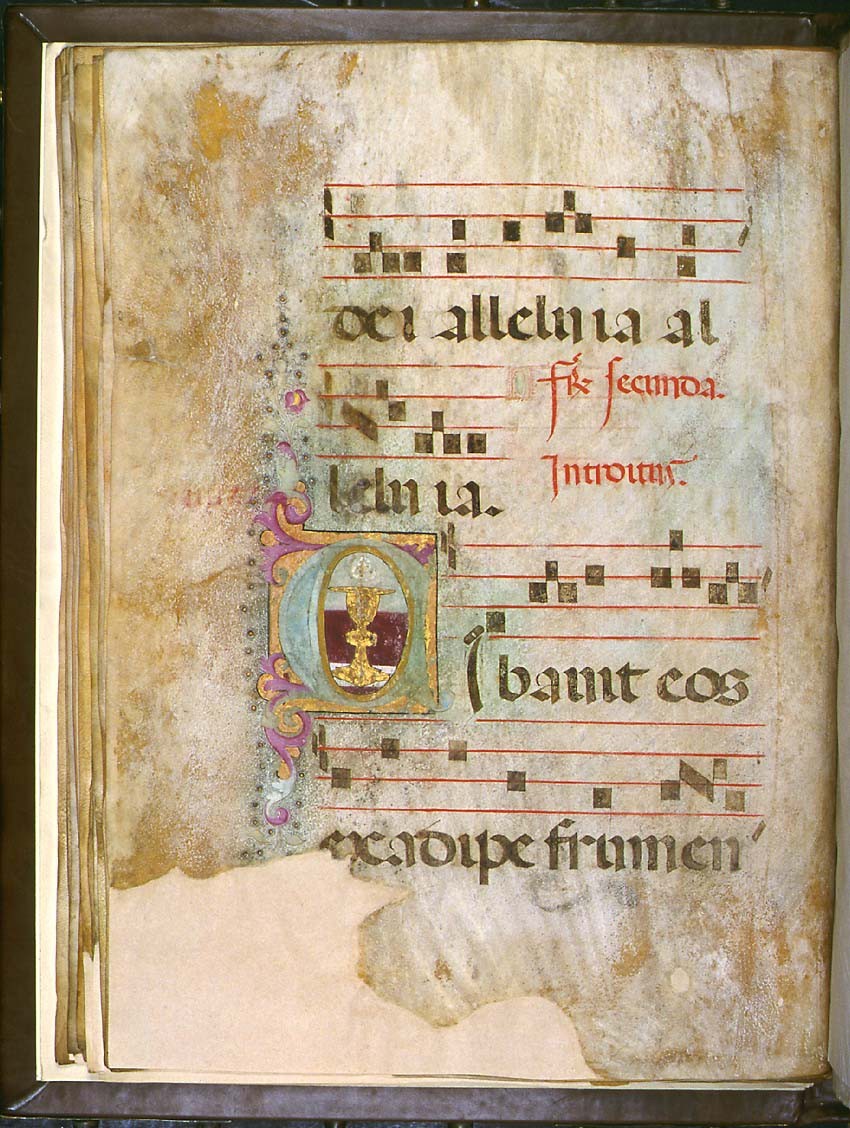 dei alleluia al
fr̃ secunda.
leluia.
Introitus.
Cibavit eos
ex adipe frumen